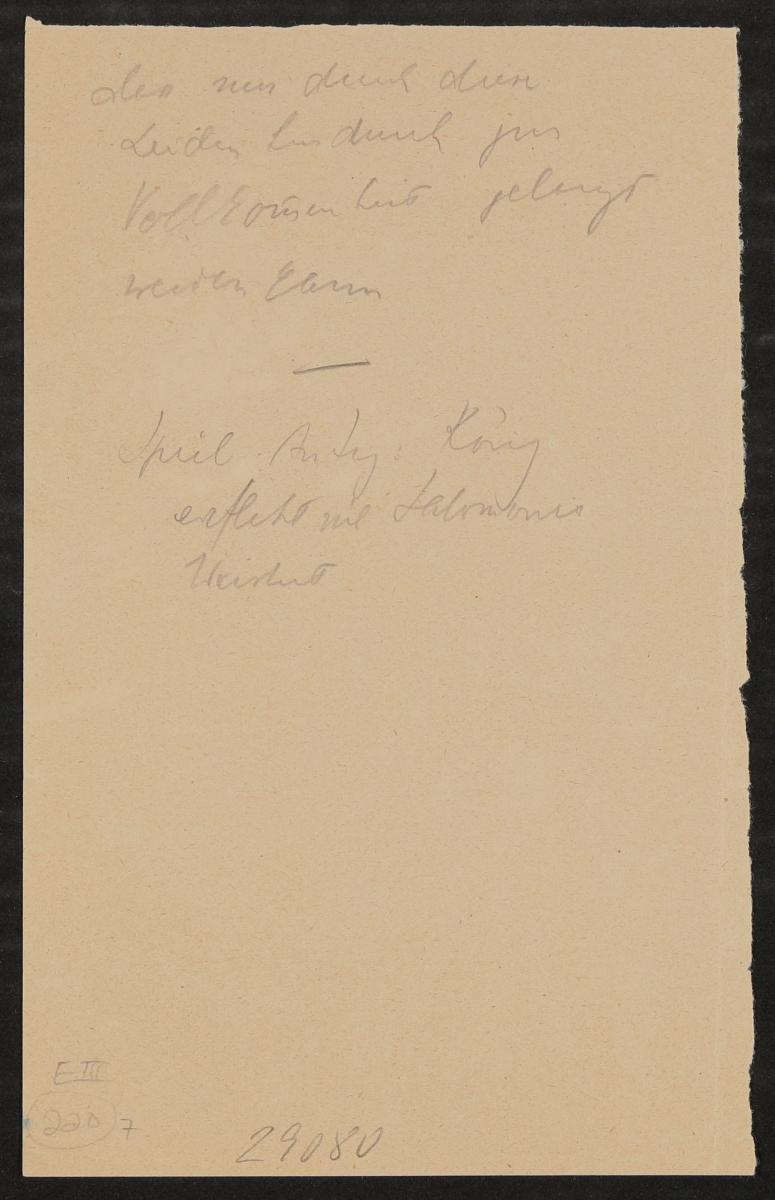 das nur durch diese
Leiden hindurch zur
Vollkommenheit gelangt
werden kann
—
Spiel Anfg: König
erfleht sich Salomonis
Weisheit
E III
220 7
29080